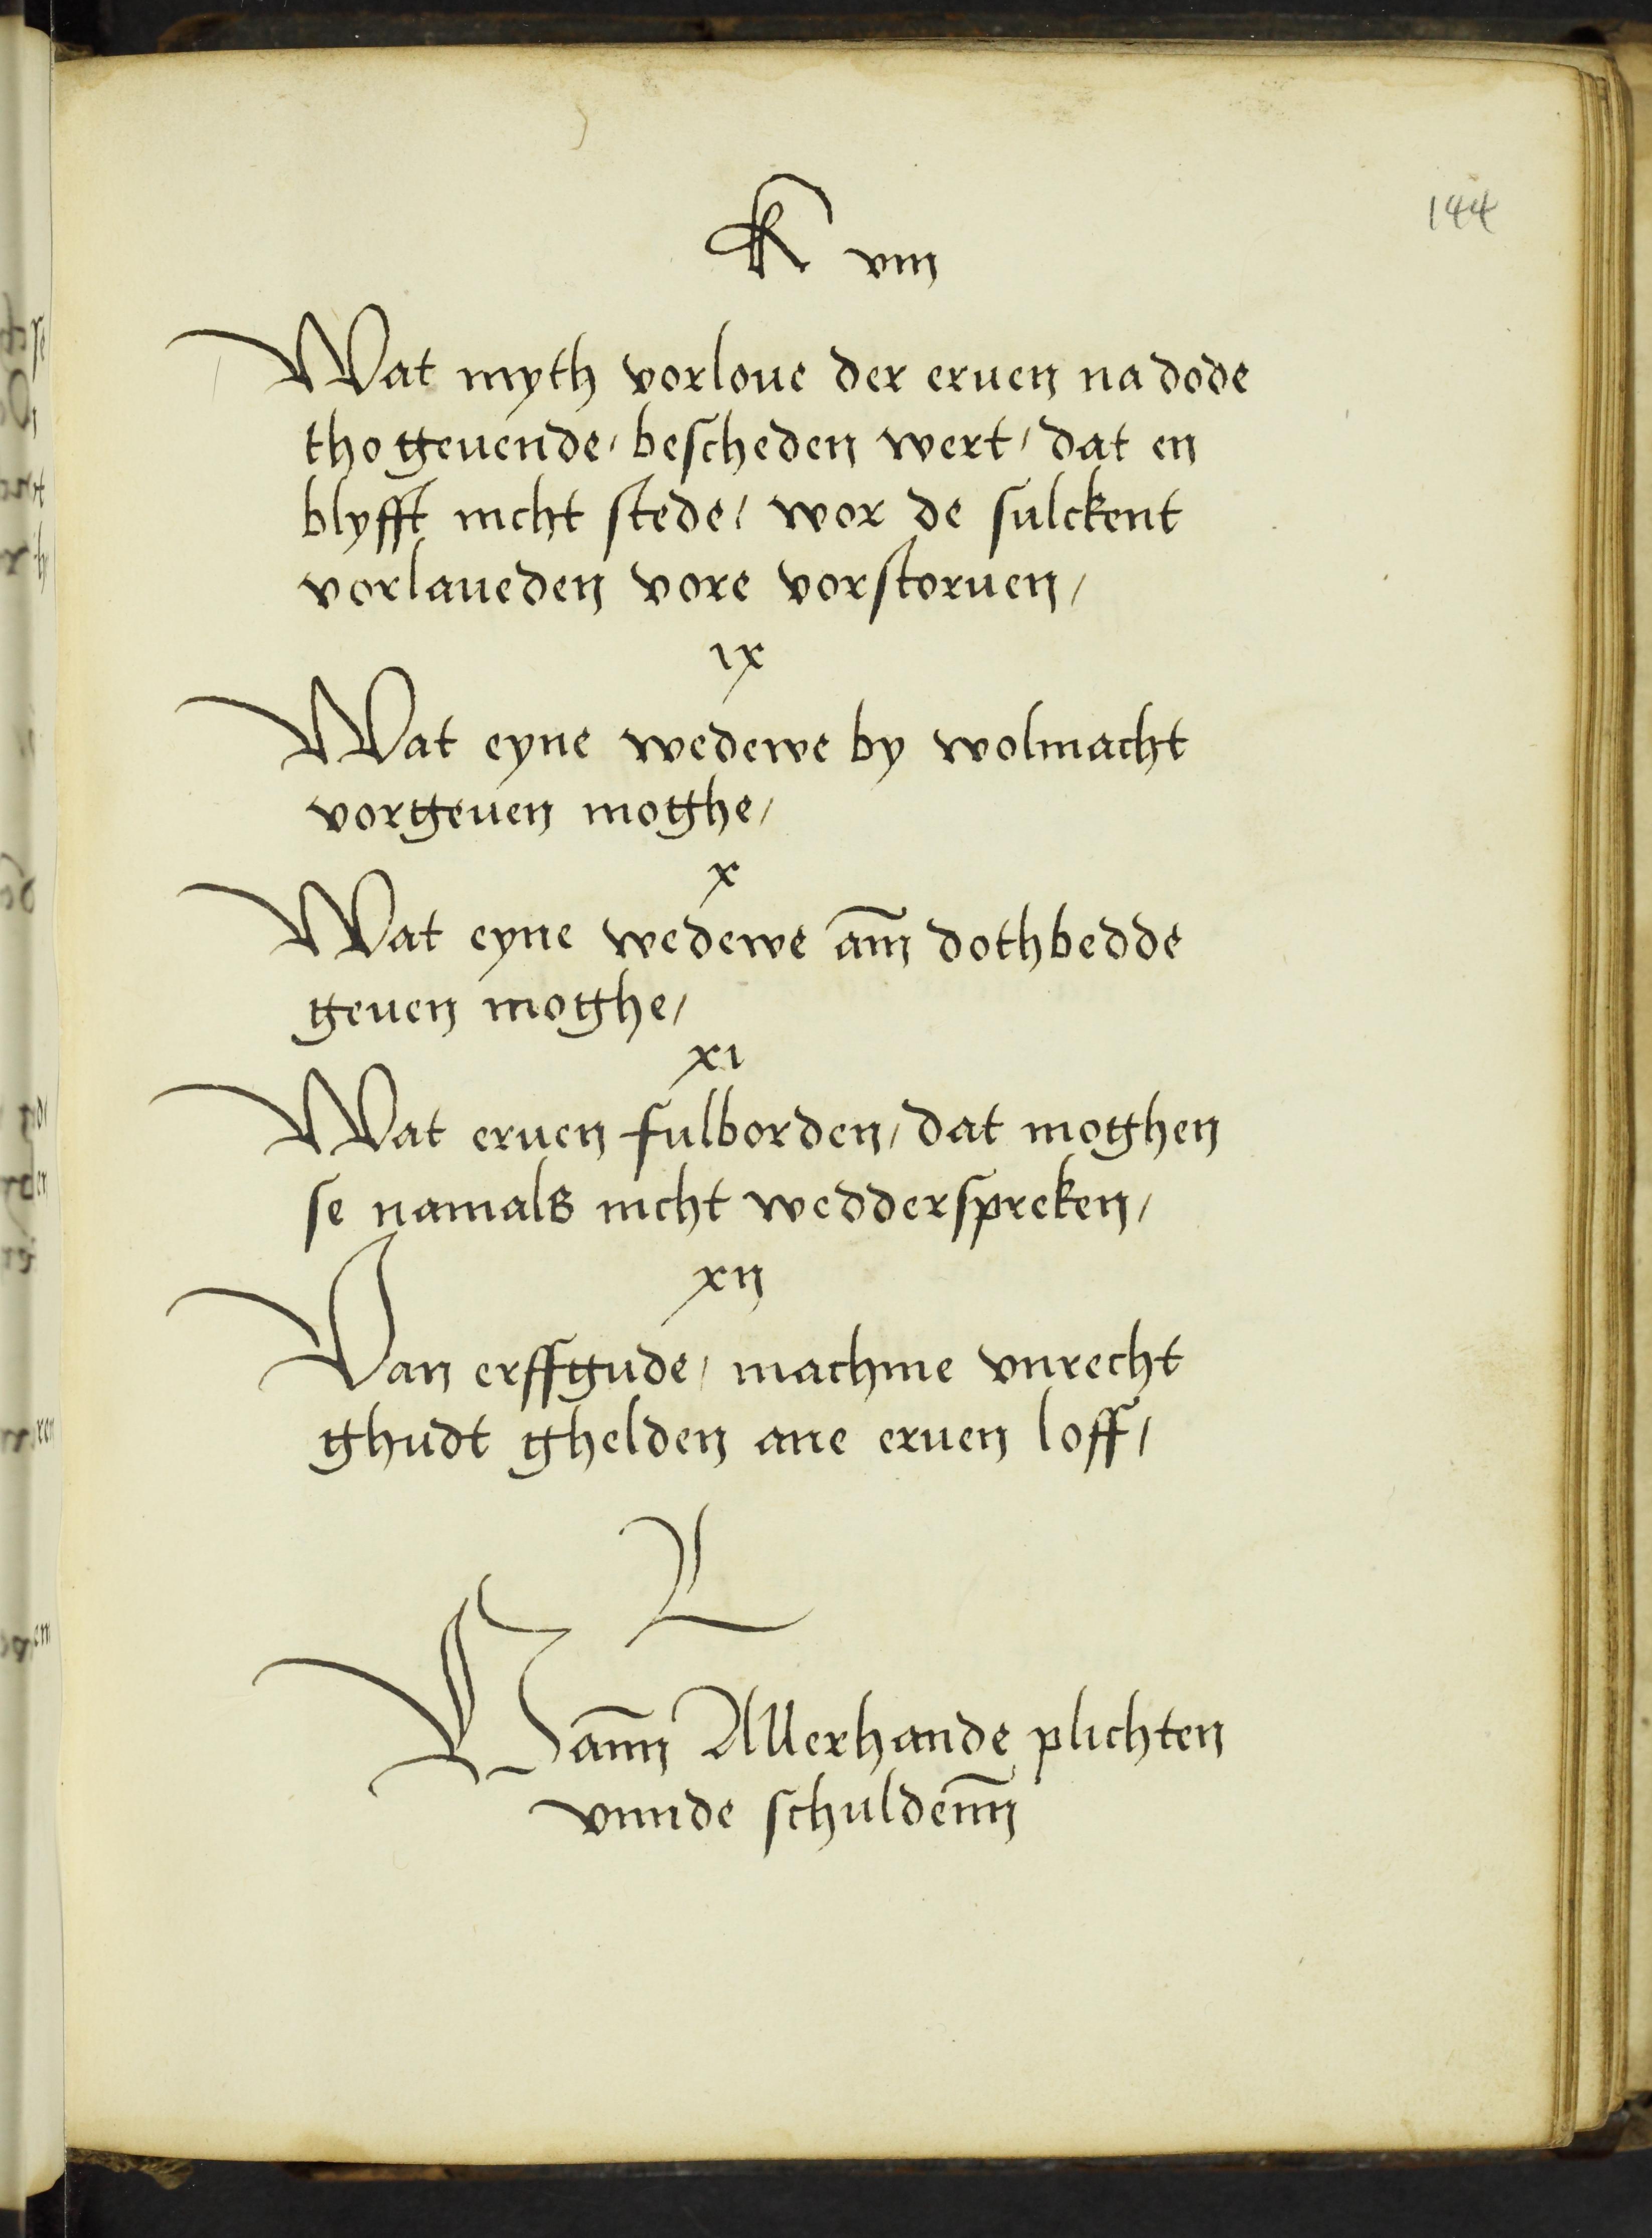 144
K viij
Wat myth vorloue der eruen na dode
tho geuende / bescheden wert / dat en
blyfft nicht stede / wor de sulckent
vorlaueden vore vorstoruen /
ix
Wat eyne wedewe by wolmacht
vorgeuen moghe /
x
Wat eyne wedewe am̄ dothbedde
geuen moghe /
xi
Wat eruen fulborden / dat moghen
se namals nicht wedderspreken /
xij
Van erffgude / machme vnrecht
ghudt ghelden ane eruen loff /
L
Van̄n Allerhande plichten
vnnde schulden̄n